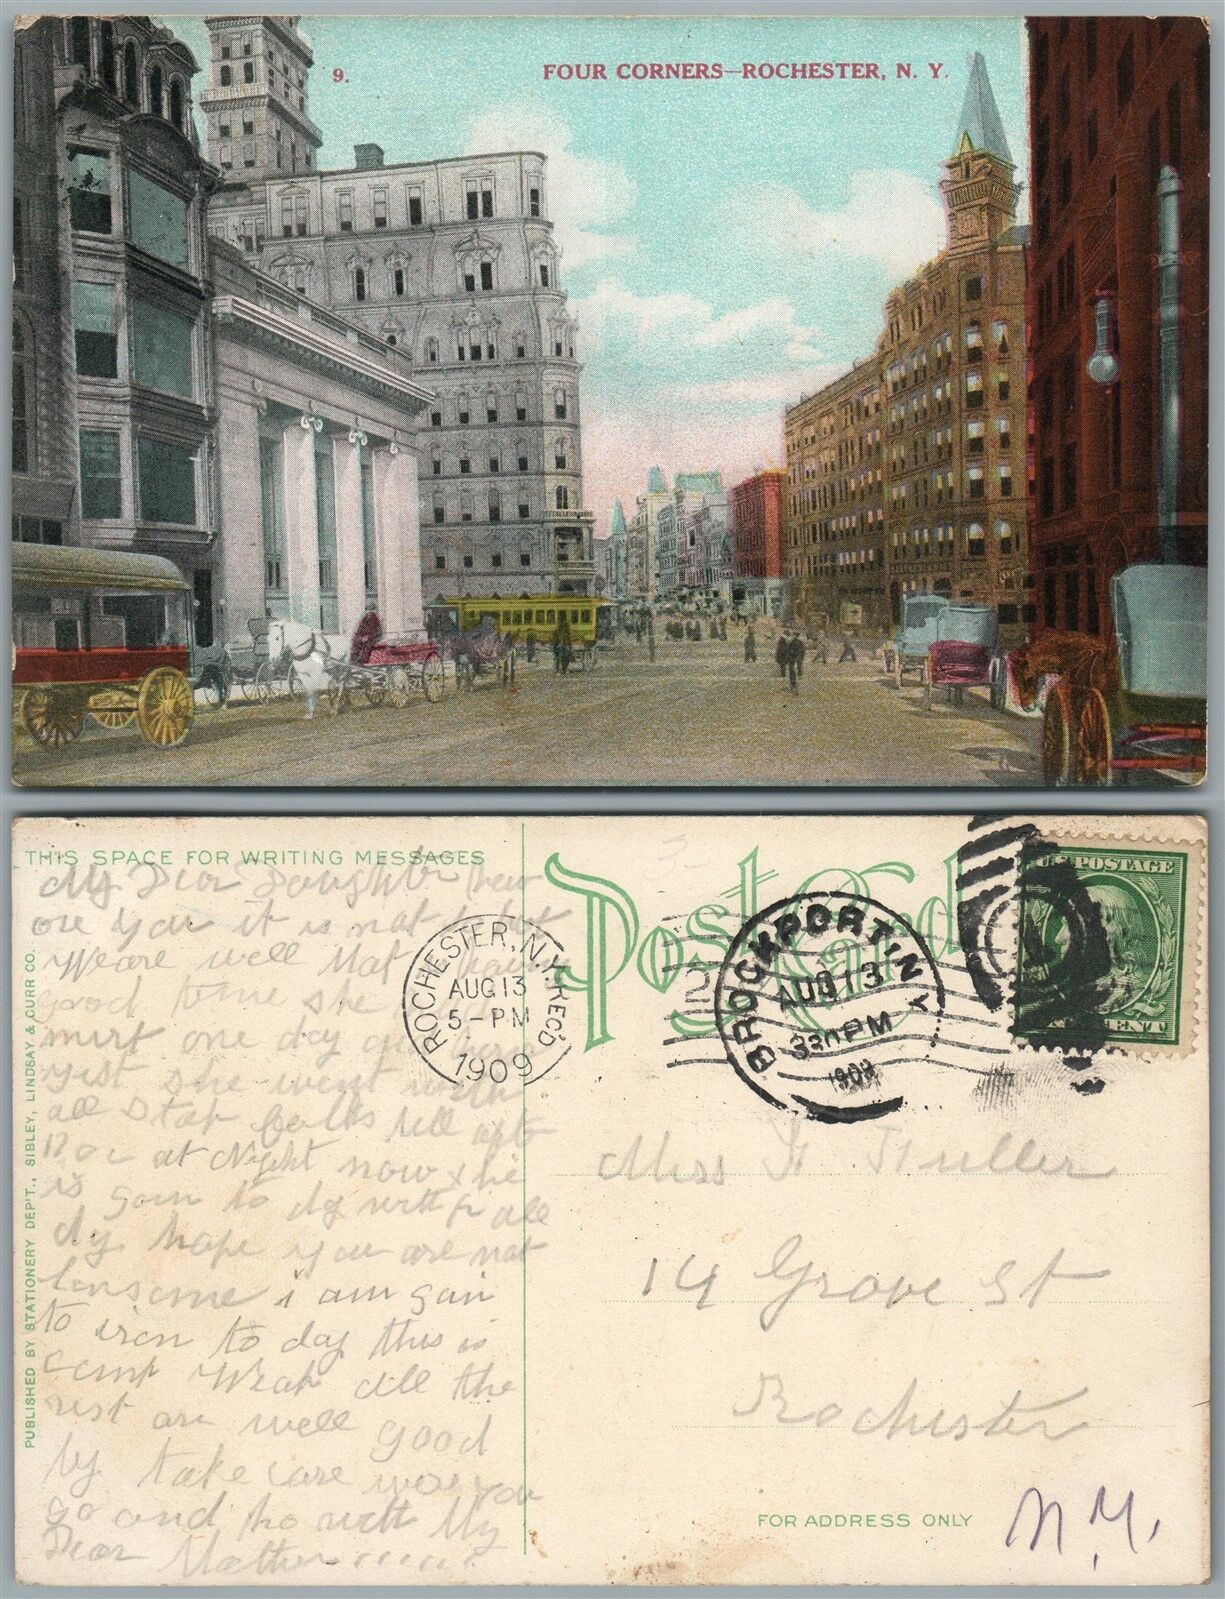 9.
FOUR CORNERS—ROCHESTER, N. Y.
THIS SPACE FOR WRITING MESSAGES
PUBLISHED BY STATIONERY DEP'T., SIBLEY, LINDSAY & CURR CO.
Post Card
My Dear Daughter how
are you it is not hot
We are well
good time she
must one day
yist she went with
all folks till
at Night now she
is goin to day with all
dy hope you are not
lonsome i am gain
to iron to day this is
all the
rest are well good
by take care were you
go and ho with My
Dear Mother
ROCHESTER, N.Y. REC'D
AUG 13
5 - PM
1909
BROCKPORT, N.Y.
AUG 13
330 PM
1909
U.S. POSTAGE
CENT
Miss H Huller
14 Grove St
Rochester
N.Y.
FOR ADDRESS ONLY